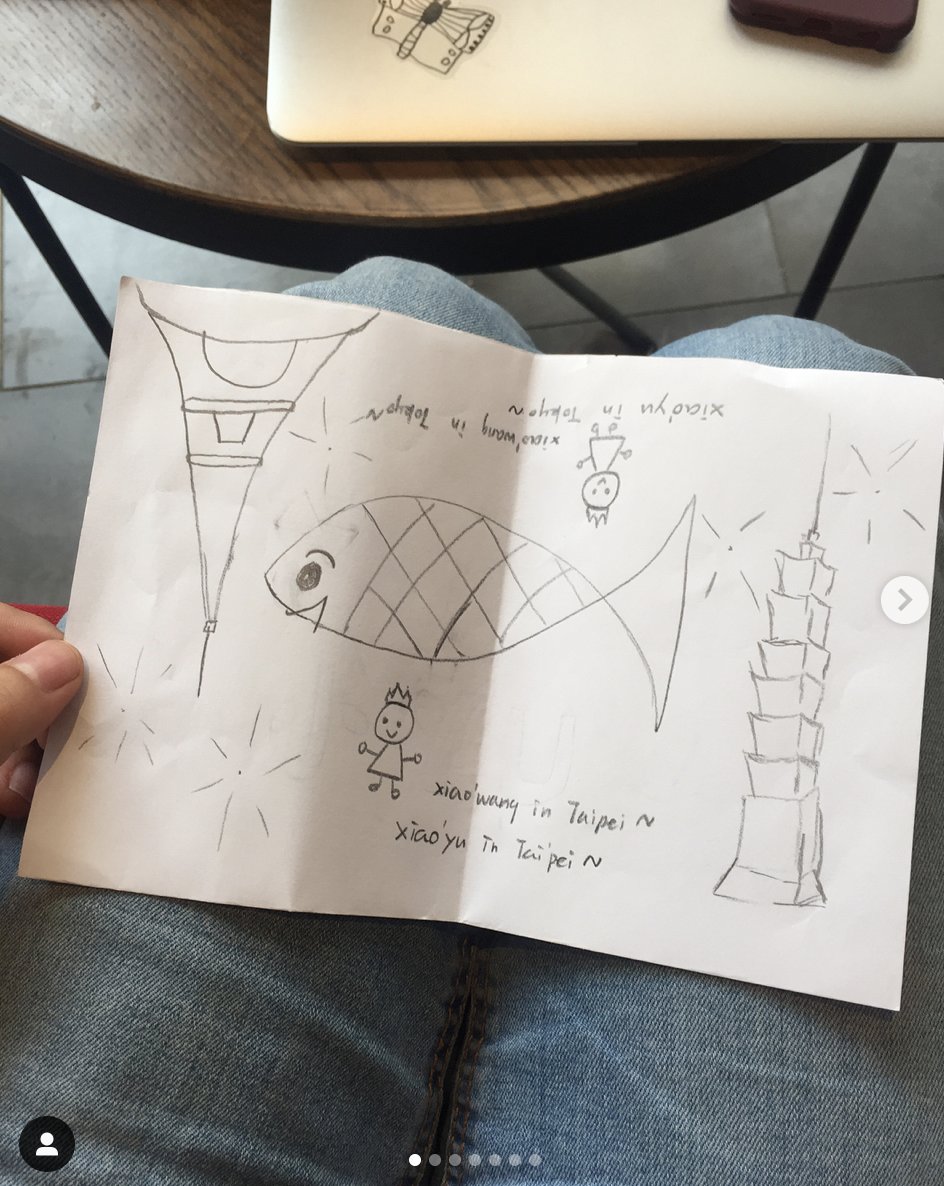 xiao'wang in Tokyo~
xiao'yu in Tokyo~
xiao'wang in Taipei ~
xiao'yu in Taipei ~